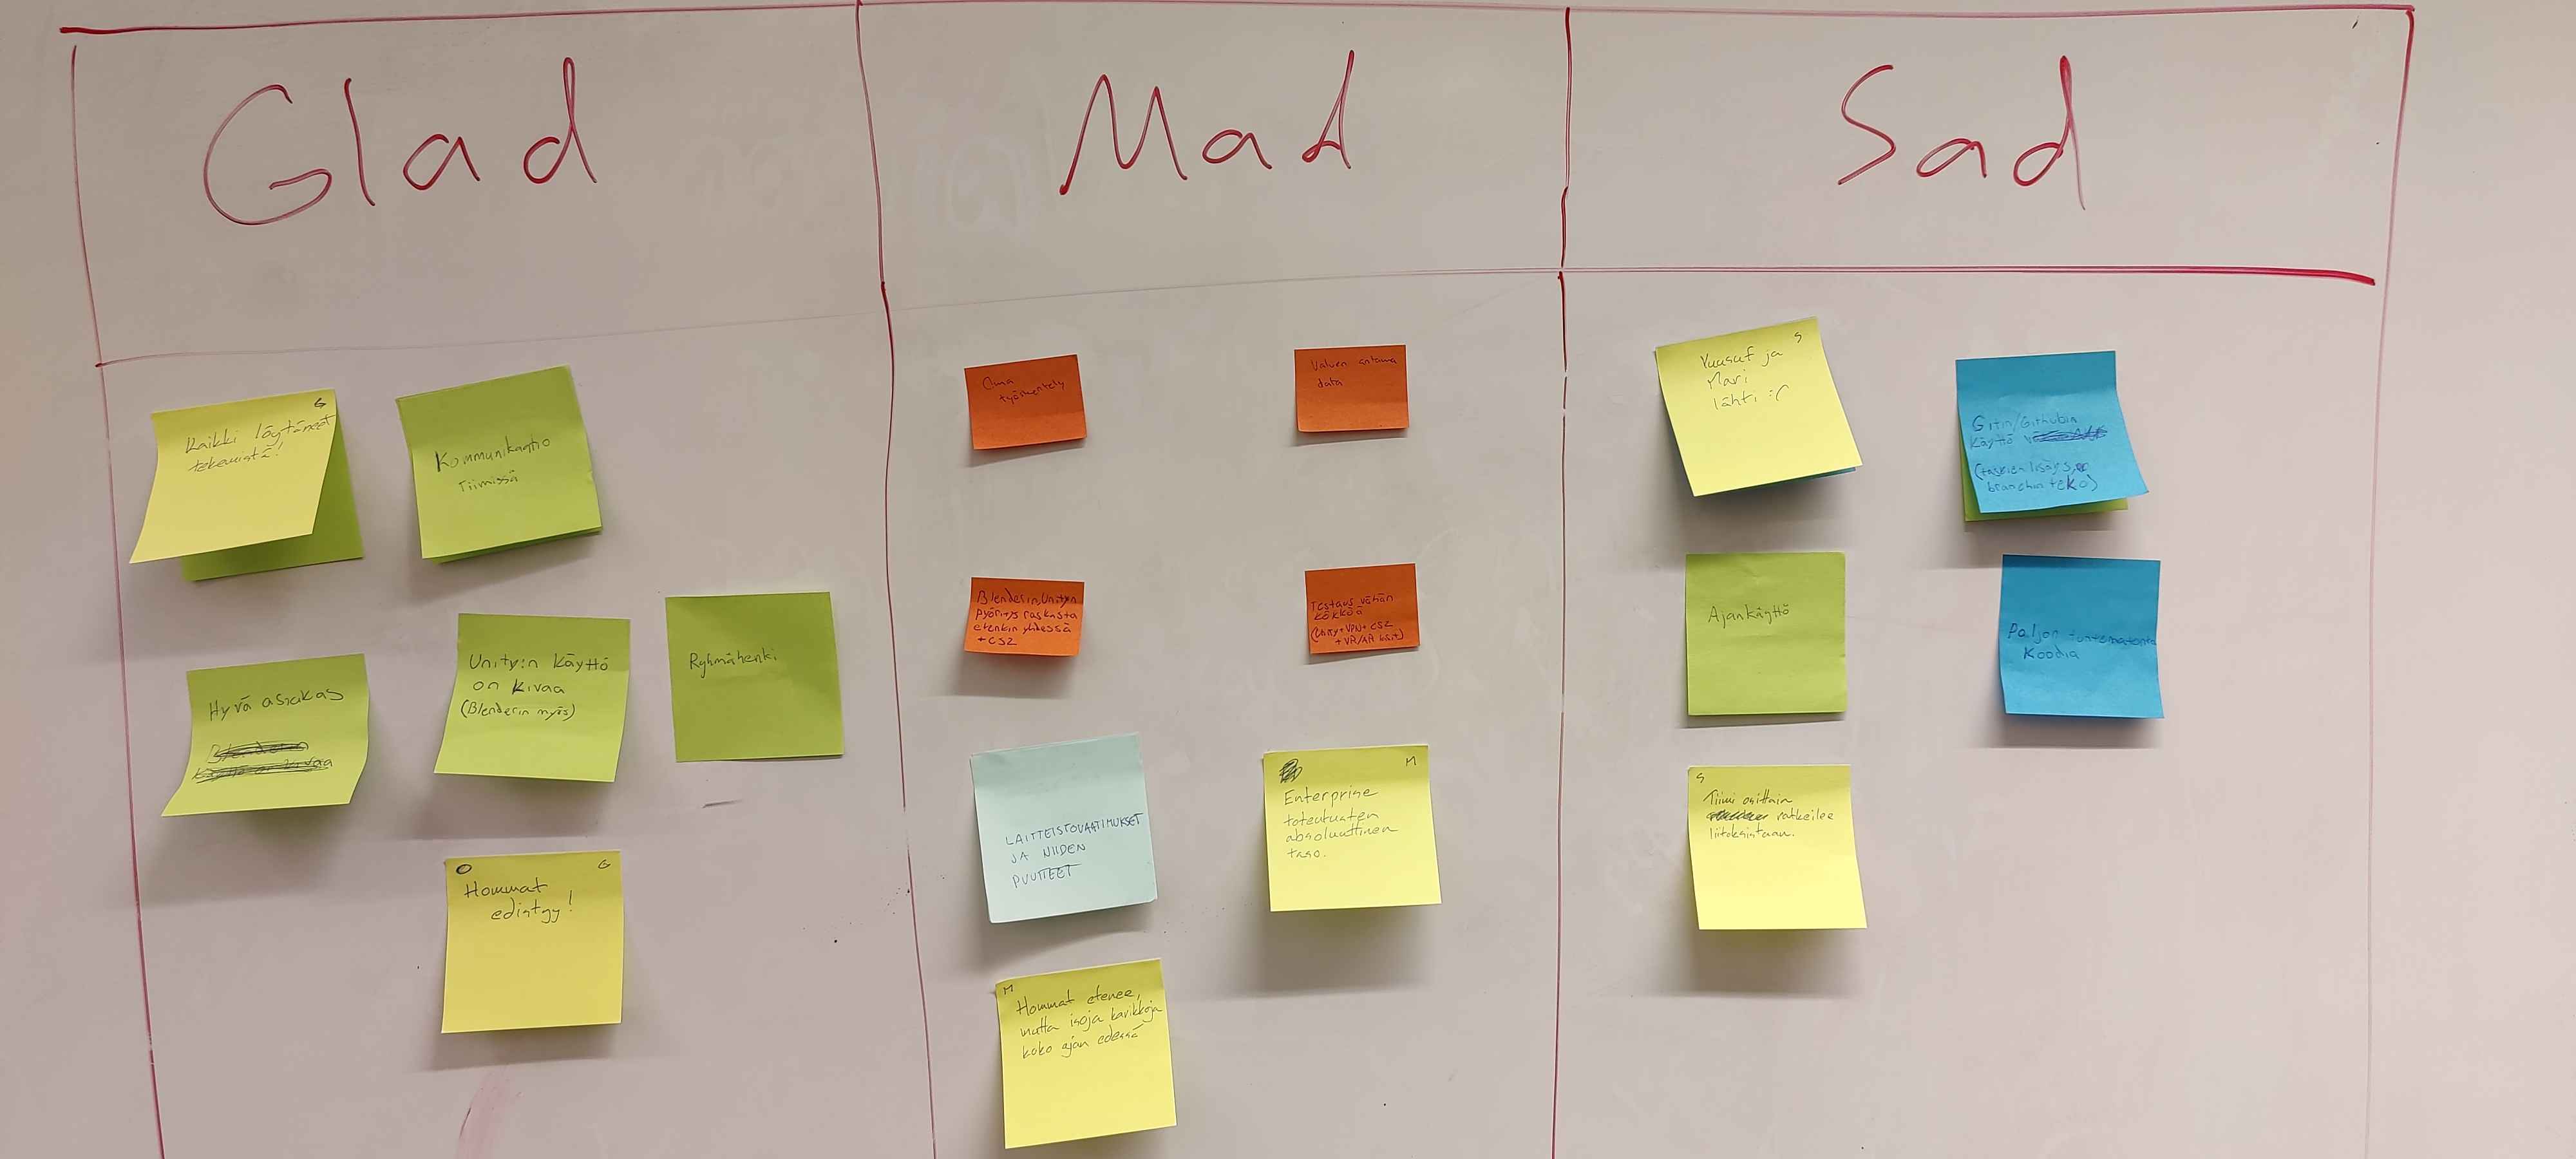 Glad
Mad
Sad
G
Kaikki löytäneet
tekemistä!
Kommunikaatio
Tiimissä
Hyvä asiakas
Unity:n käyttö
on kivaa
(Blenderin myös)
Ryhmähenki
G
Hommat
edistyy!
Oma
työskentely
Valven antama
data
Blenderin, Unityn
pyöritys raskasta
etenkin yhdessä
+ CS2
Testaus vähän
kökköä
(Unity + VPN + CS2
+ VR/AR
LAITTEISTOVAATIMUKSET
JA NIIDEN
PUUTTEET
M
Enterprise
toteutusten
absoluuttinen
taso.
M
Hommat etenee,
mutta isoja karikkoja
koko ajan edessä
S
Yuusuf ja
Mari
lähti :(
Gitin/Githubin
käyttö
(taskien lisäys,
branchin teko)
Ajankäyttö
Paljon tuntematonta
koodia
S
Tiimi osittain
ratkeilee
liitoksistaan.